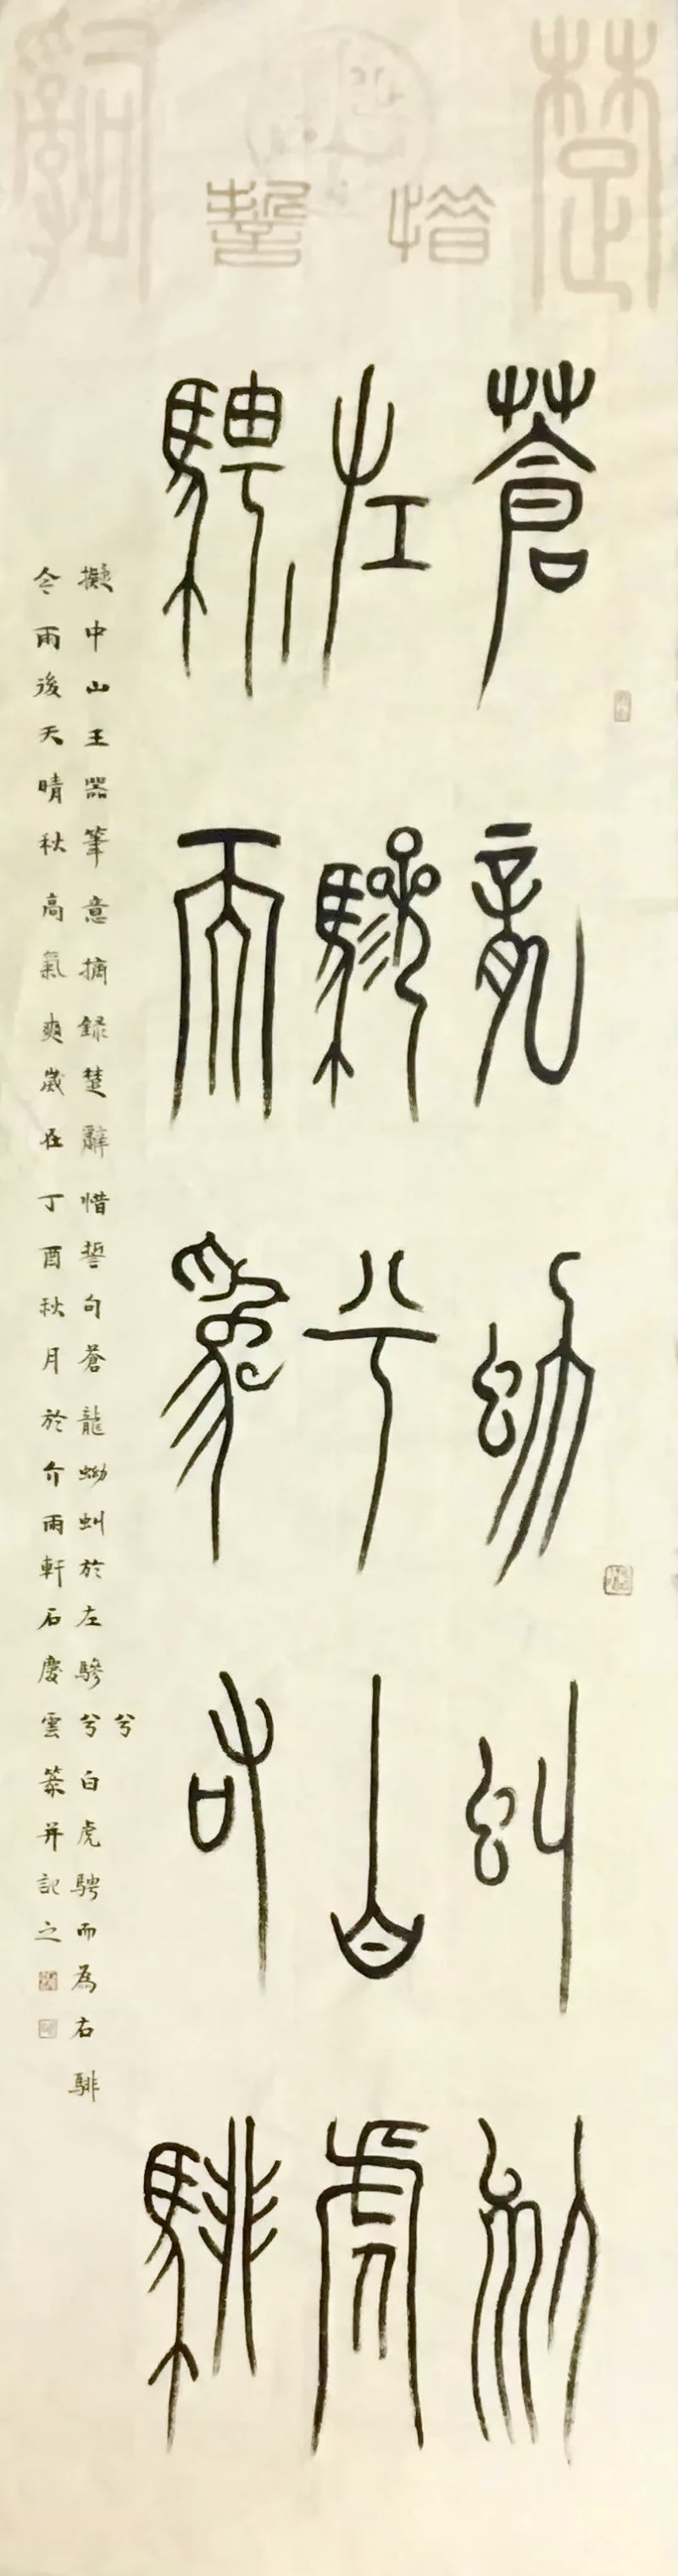 楚辭
惜誓
蒼龍蚴虯於
左驂兮白虎
騁而為右騑
擬中山王器筆意摘錄楚辭惜誓句蒼龍蚴虯於左驂兮白虎騁而為右騑
兮
令雨後天晴秋高氣爽歲在丁酉秋月於介雨軒石慶雲篆并記之